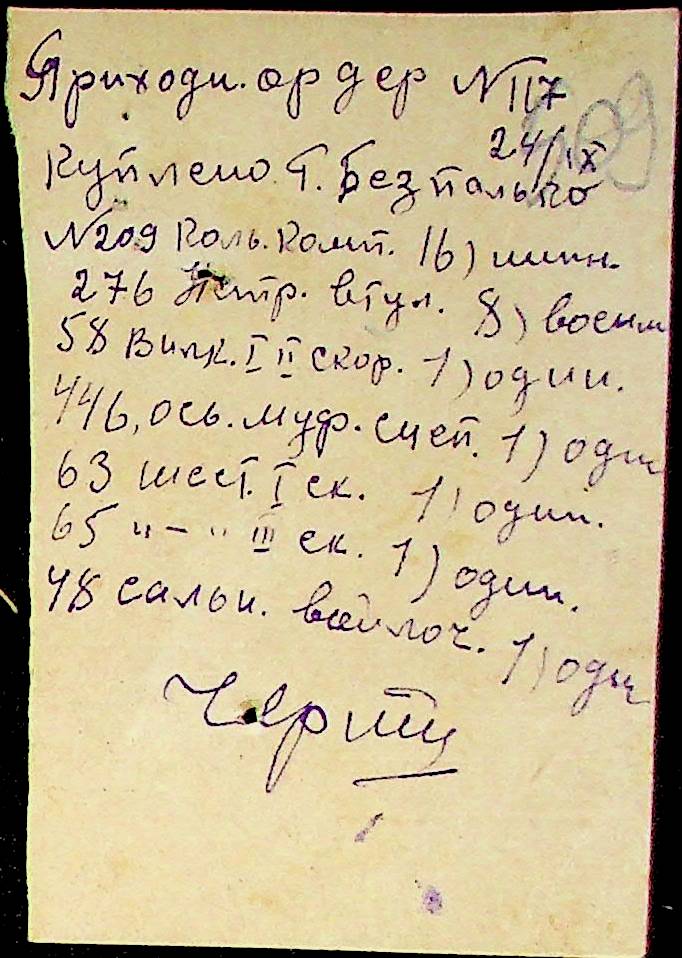 Приходн. ордер N 117
24/IX
209
Куплено Т. Безпалько
N209 Коль. Комп. 16) штн.
276 Нетр. втул. 8) восьм
58 Вилк. I II скор. 1) один.
446, ось. муф. сцеп. 1) один
63 шест. I ск. 1) один.
65 "—" III ск. 1) один.
48 сальн. войлоч. 1) один